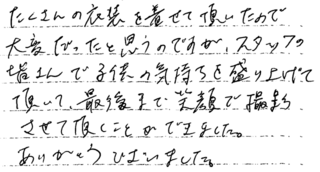 たくさんの衣装を着せて頂いたので
大変だったと思うのですが、スタッフの
皆さんで子供の気持ちを盛り上げて
頂いて、最後まで笑顔で撮影
させて頂くことができました。
ありがとうございました。